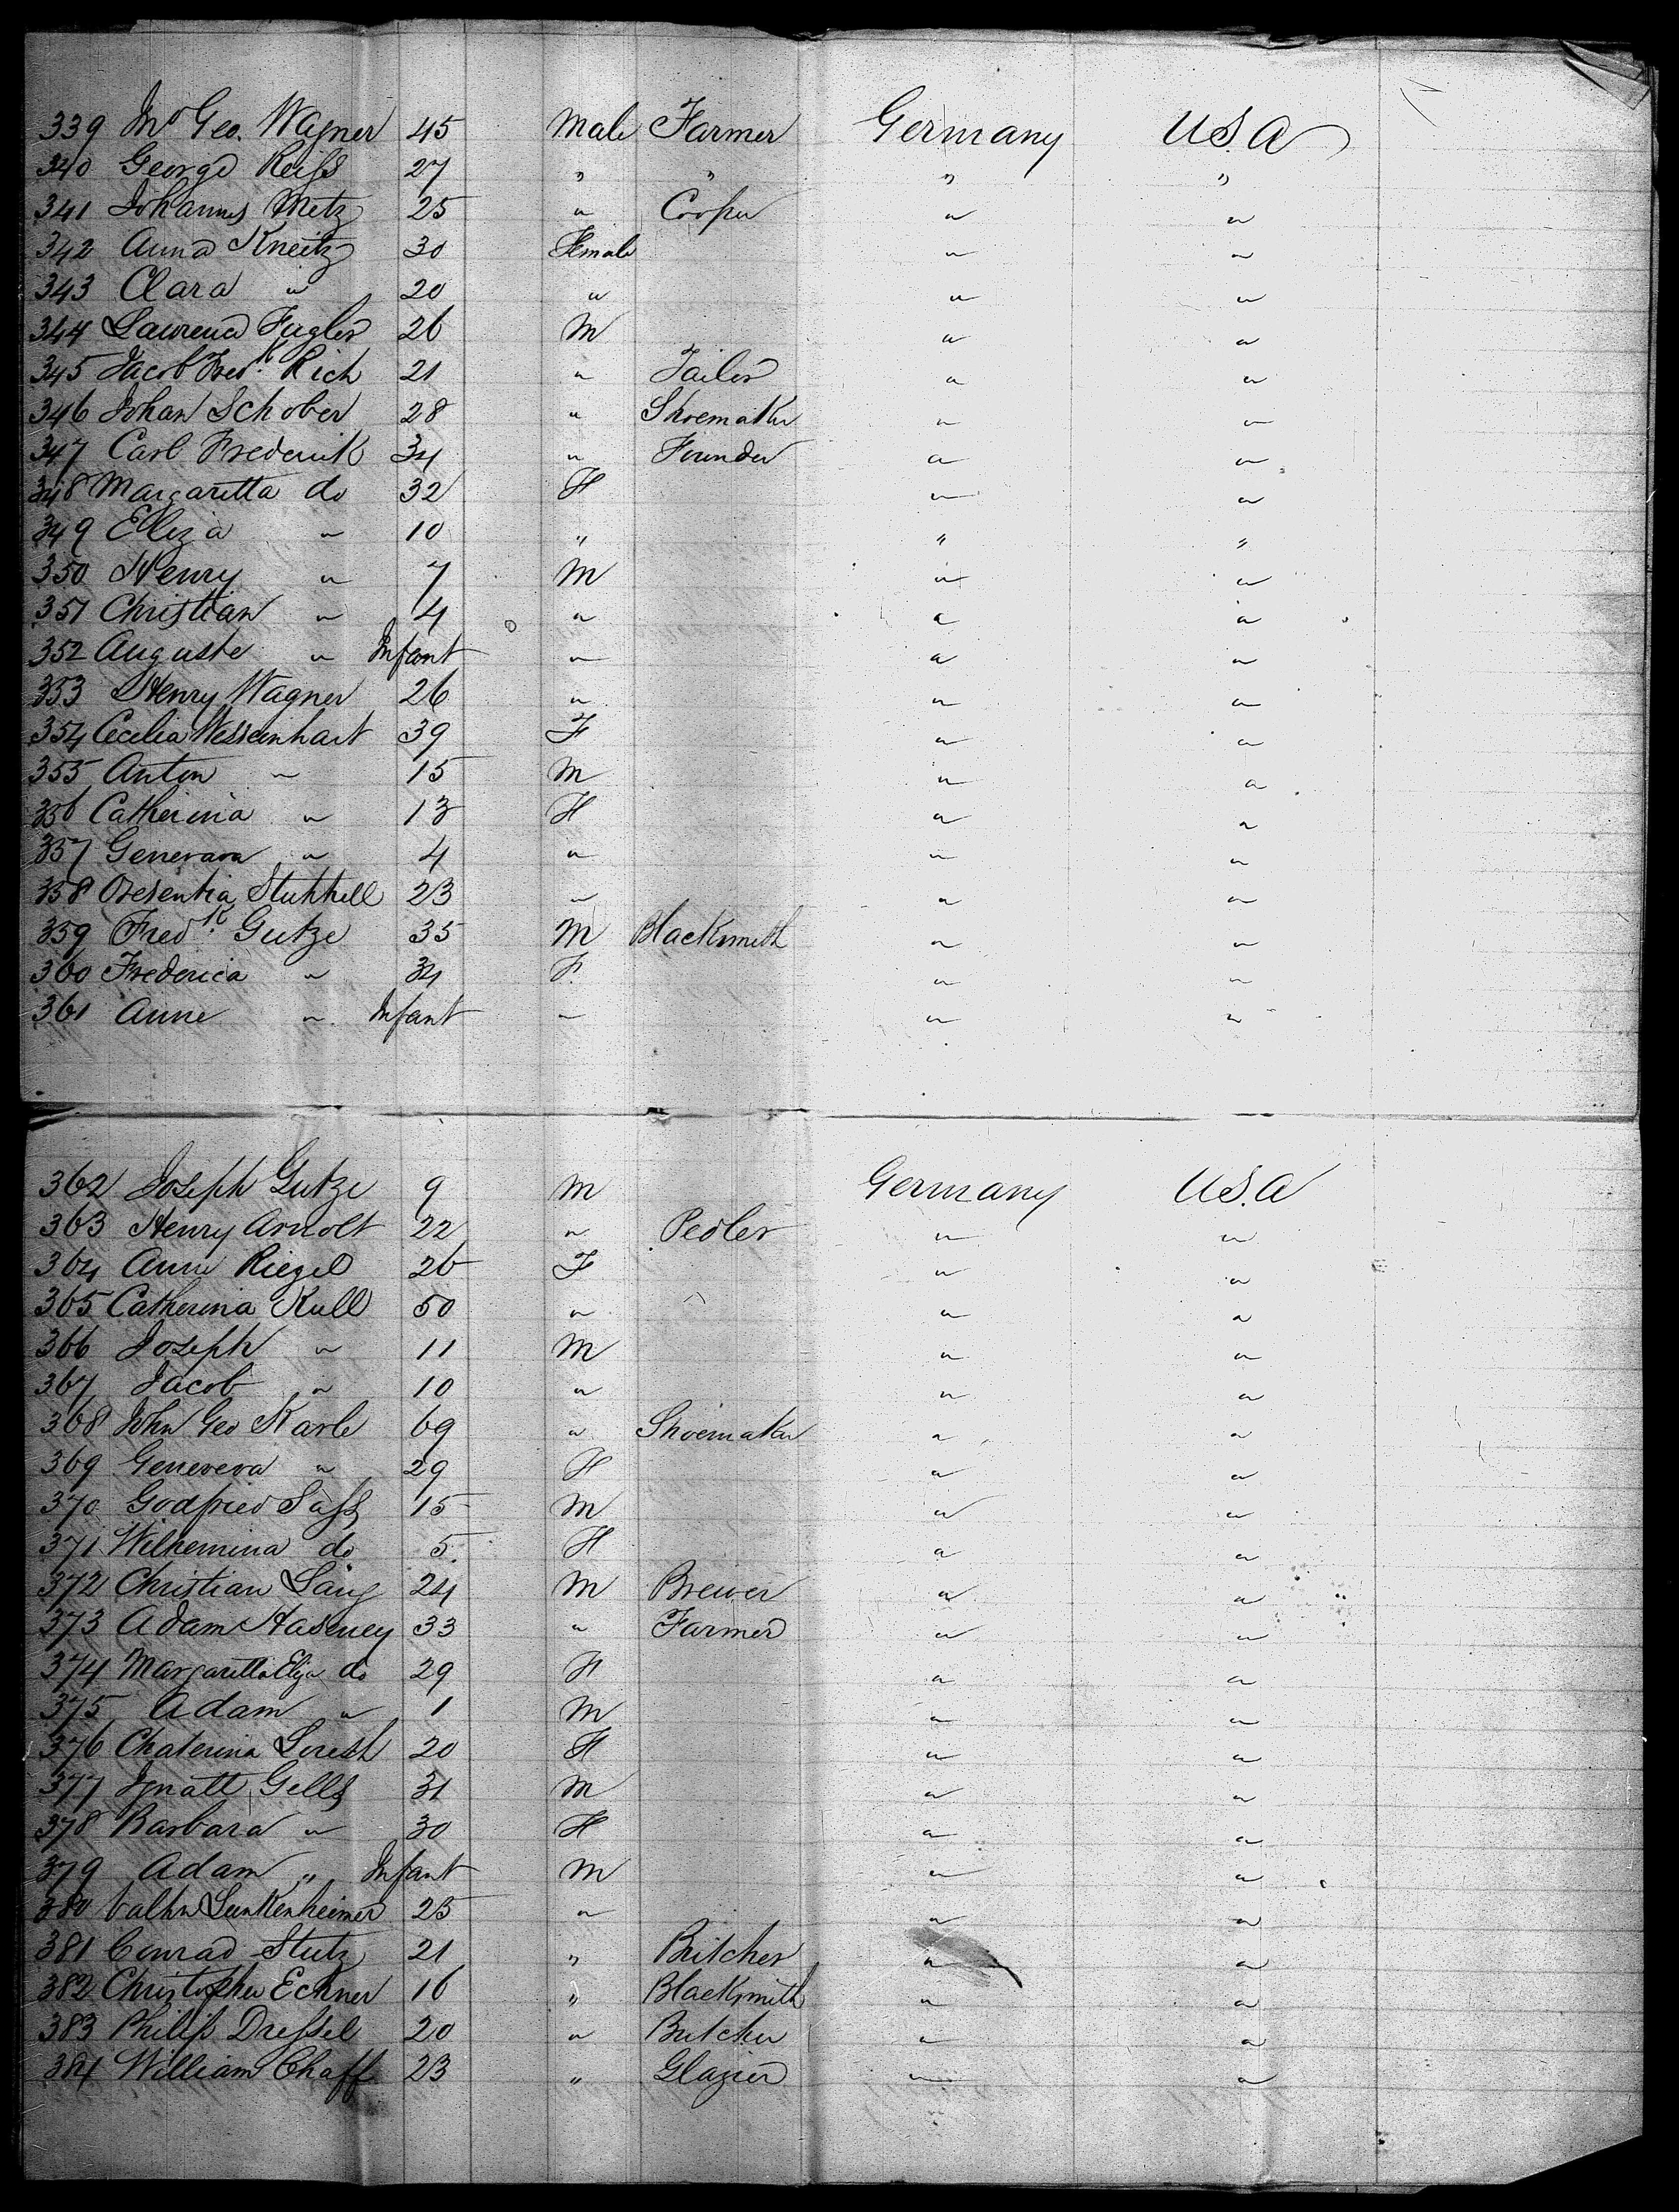 339 Jno Geo. Wagner 45 Male Farmer Germany U.S.A
340 George Reiss 27 " " " "
341 Johannes Metz 25 " Cooper " "
342 Anna Kneitz 30 Female " "
343 Clara " 20 " " "
344 Laurence Fugler 26 M " "
345 Jacob Fredk. Rich 21 " Tailor " "
346 Johan Schober 28 " Shoemaker " "
347 Carl Frederick 34 " Founder " "
348 Margaretta do 32 F " "
349 Eliza " 10 " " "
350 Henry " 7 M " "
351 Christian " 4 " " "
352 Auguste " Infant " " "
353 Henry Wagner 26 " " "
354 Cecelia Wesseinhart 39 F " "
355 Anton " 15 M " "
356 Catherina " 13 F " "
357 Generava " 4 " " "
358 Stuhhell 23 " " "
359 Fredk. Gutze 35 M Blacksmith " "
360 Frederica " 34 F. " "
361 Anne " Infant " " "
362 Joseph Gutze 9 M Germany U.S.A
363 Henry Arnolt 22 " Pedler " "
364 Anne Riegel 26 F " "
365 Catherina Kull 50 " " "
366 Joseph " 11 M " "
367 Jacob " 10 " " "
368 John Geo Karle 69 " Shoemaker " "
369 Geneveva " 29 F " "
370 Godfried Sass 15 M " "
371 Wilhemina do 5. F " "
372 Christian Lang 24 M Brewer " "
373 Adam Hasney 33 " Farmer " "
374 Margaretta Eliza do 29 F " "
375 Adam " 1 M " "
376 Chaterina Leresh 20 F " "
377 Ignatt Gells 31 M " "
378 Barbara " 30 F " "
379 Adam " Infant M " "
380 Valtin Lunkenheimer 25 " " "
381 Conrad Stutz 21 " Butcher " "
382 Christopher Eckner 16 " Blacksmith " "
383 Philip Dressel 20 " Butcher " "
384 William Chaff 23 " Glazier " "